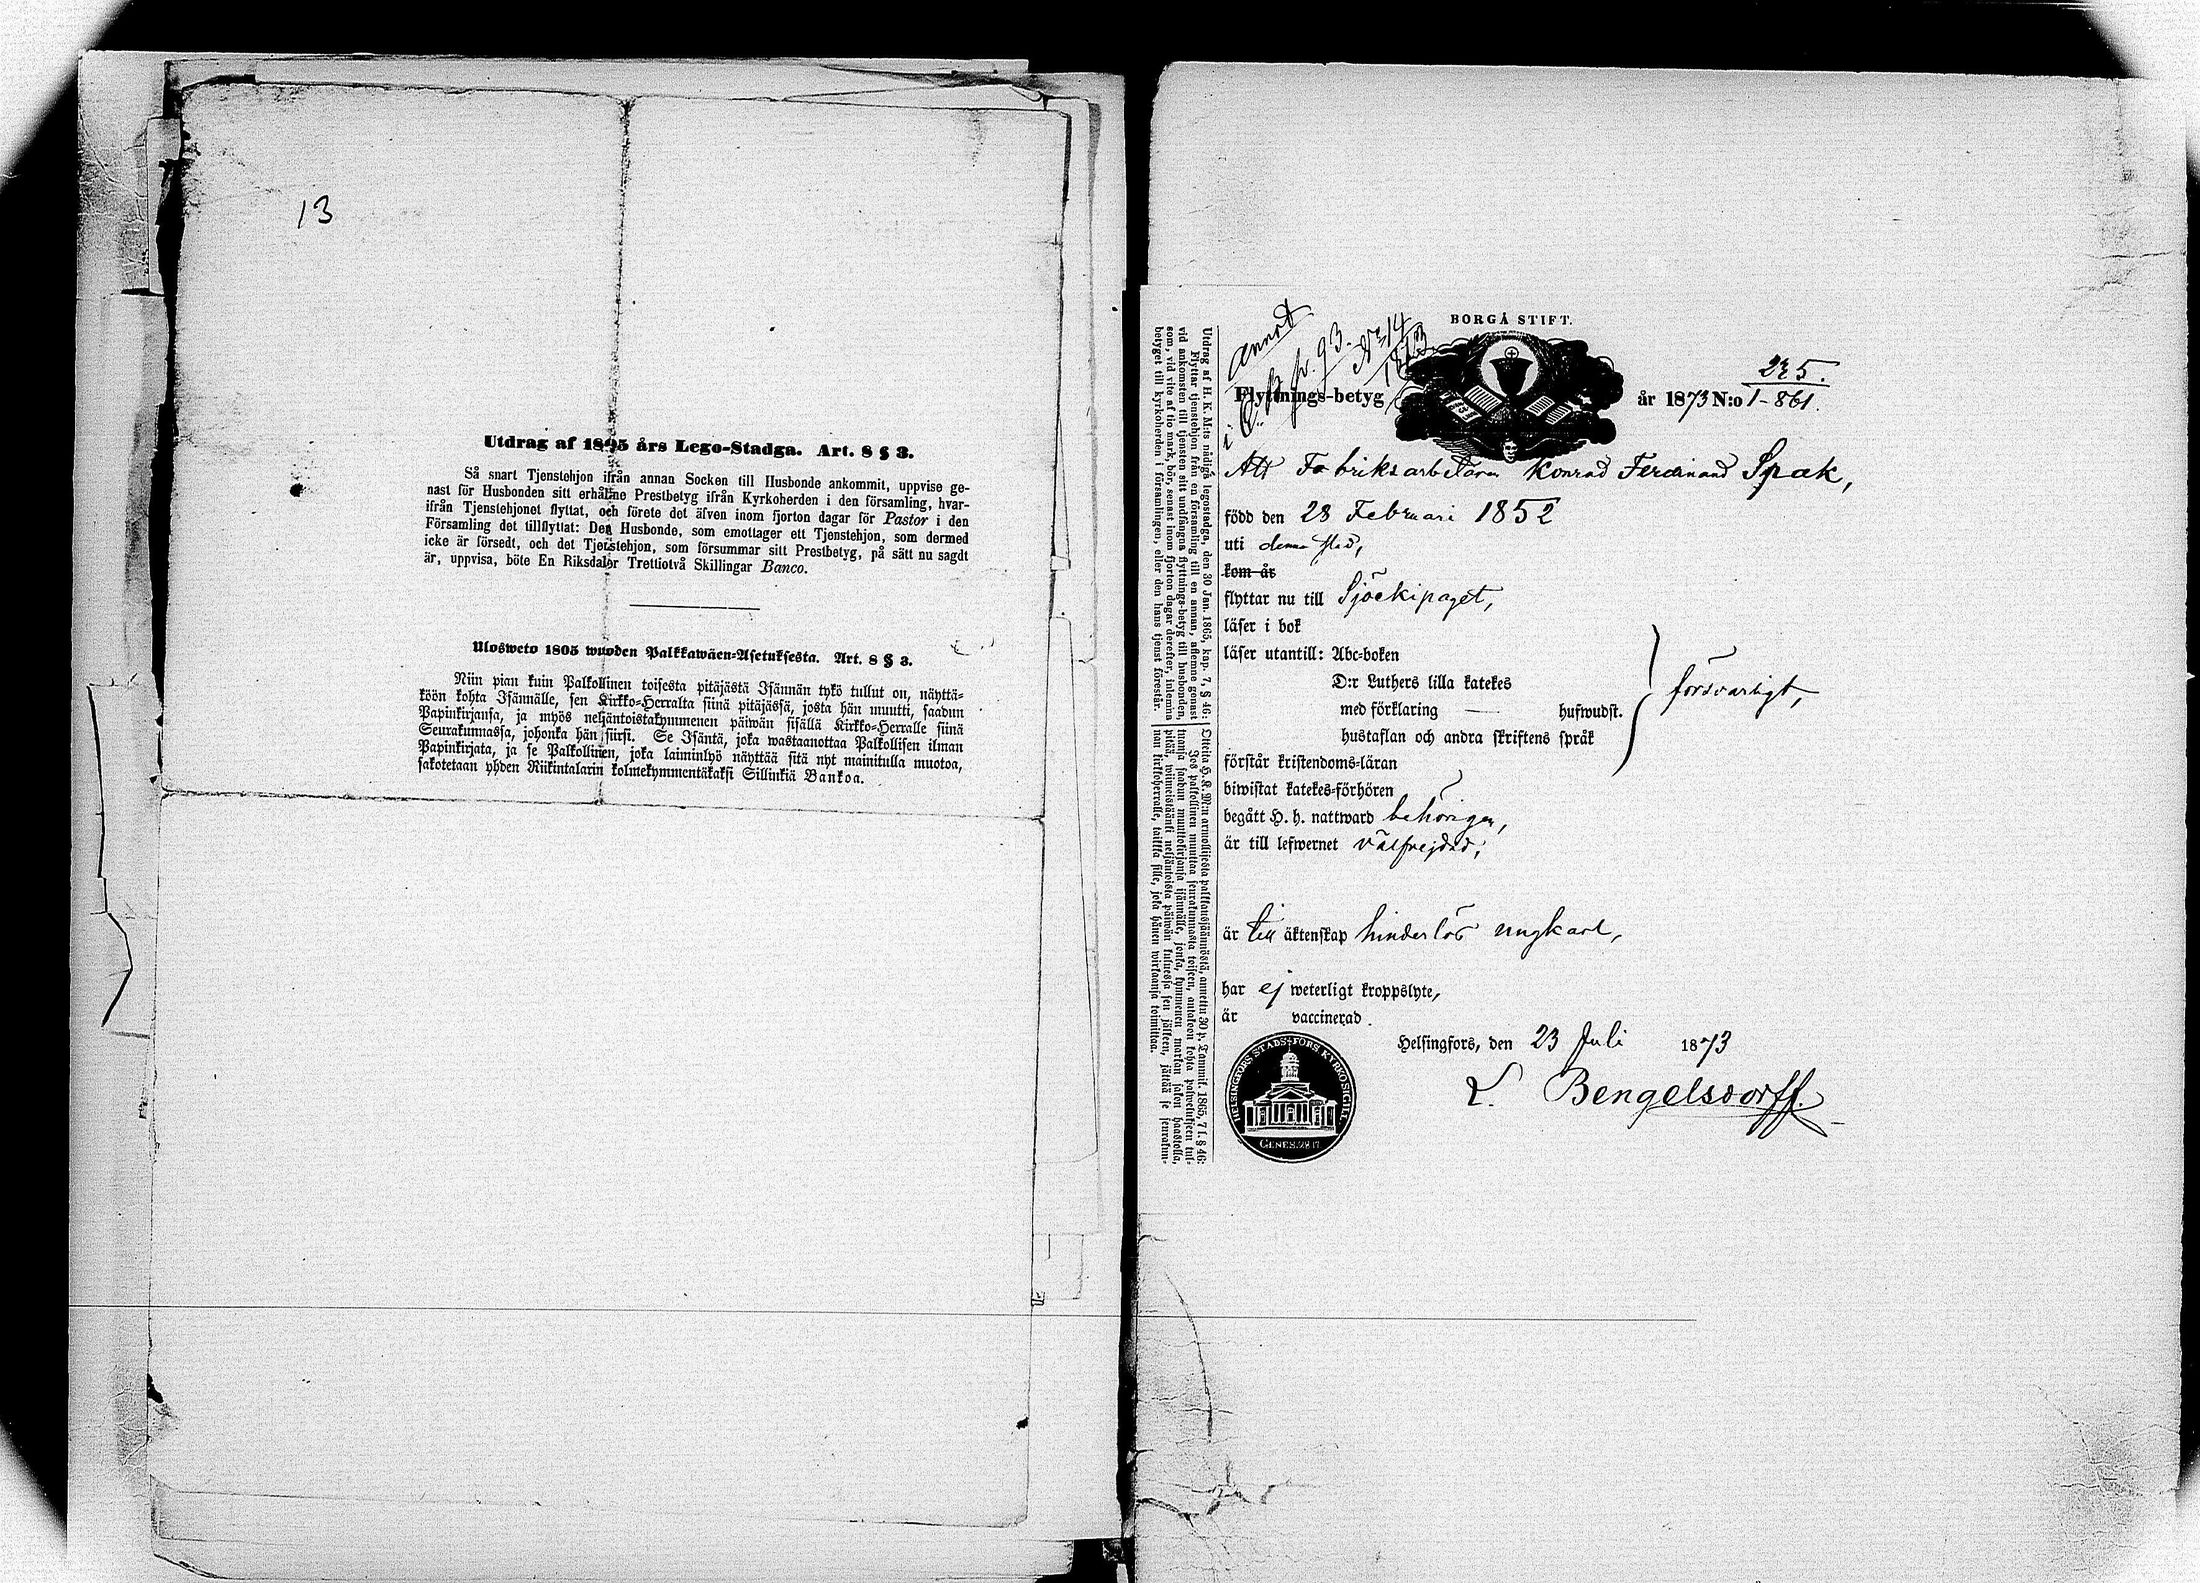 13
Utdrag af 1805 års Lego-Stadga. Art. 8 § 3.
Så snart Tjenstehjon ifrån annan Socken till Husbonde ankommit, uppvise ge-
nast för Husbonden sitt erhållne Prestbetyg ifrån Kyrkoherden i den församling, hvar-
ifrån Tjenstehjonet flyttat, och förete det äfven inom fjorton dagar för Pastor i den
Församling det tillflyttat: Den Husbonde, som emottager ett Tjenstehjon, som dermed
icke är försedt, och det Tjenstehjon, som försummar sitt Prestbetyg, på sätt nu sagdt
är, uppvisa, böte En Riksdaler Trettiotvå Skillingar Banco.
Ulosweto 1805 wuoden Palkkawäen-Asetuksesta. Art. 8 § 3.
Niin pian kuin Palkollinen toisesta pitäjästä Isännän tykö tullut on, näyttä-
köön kohta Isännälle, sen Kirkko-Herralta siinä pitäjässä, josta hän muutti, saadun
Papinkirjansa, ja myös neljäntoistakymmenen päiwän sisällä Kirkko-Herralle siinä
Seurakunnassa, johonka hän siirsi. Se Isäntä, joka wastaanottaa Palkollisen ilman
Papinkirjata, ja se Palkollinen, joka laiminlyö näyttää sitä nyt mainitulla muotoa,
sakotetaan yhden Riikintalarin kolmekymmentäkaksi Sillinkiä Bankoa.
Utdrag af H. K. M:ts nådiga legostadga, den 30 Jan. 1865, kap. 7, § 46:
Flyttar tjenstehjon från en församling till en annan, aflemne genast
vid ankomsten till tjensten sitt undfångna flyttnings-betyg till husbonden,
som, vid vite af tio mark, bör, senast inom fjorton dagar derefter, inlemna
betyget till kyrkoherden i församlingen, eller den hans tjenst förestår.
Otteita H. K. M:n armollisesta palkkausjäännöstä, annettu 30 p. Tammik. 1865, 7 l. § 46:
Jos palkollinen muuttaa seurakunnasta toiseen, antakoon kohta palwelukseen tul-
tuansa saadun muuttokirjansa isännälle, jonka, kymmenen markan sakon haastolla,
pitää, wiimeistäänki neljäntoista päiwän kuluessa sen jälkeen, jättää se seurakun-
nan kirkoherralle, taikka sille, joka hänen wirkaansa toimittaa.
annot
i C. B p. 93. No 14
1873
BORGÅ STIFT.
Flyttnings-betyg
år 1873 N:o 235.
1-861.
Att Fabriksarbetaren Konrad Ferdinand Spak,
född den 28 Februari 1852
uti denna stad,
kom år
flyttar nu till Sjöckipaget,
läser i bok
läser utantill: Abc-boken
D:r Luthers lilla katekes
med förklaring — hufwudst.
hustaflan och andra skriftens språk
försvarligt,
förstår kristendoms-läran
biwistat katekes-förhören
begått H. h. nattward behörigen,
är till lefwernet välfrejdad;
är till äktenskap hinderlös ungkarl,
har ej weterligt kroppslyte,
är vaccinerad.
Helsingfors, den 23 Juli 1873
L. Bengelsdorff.
HELSINGFORS STADS-FÖRS. KYRKO SIGILL.
GENES. 28. 17.